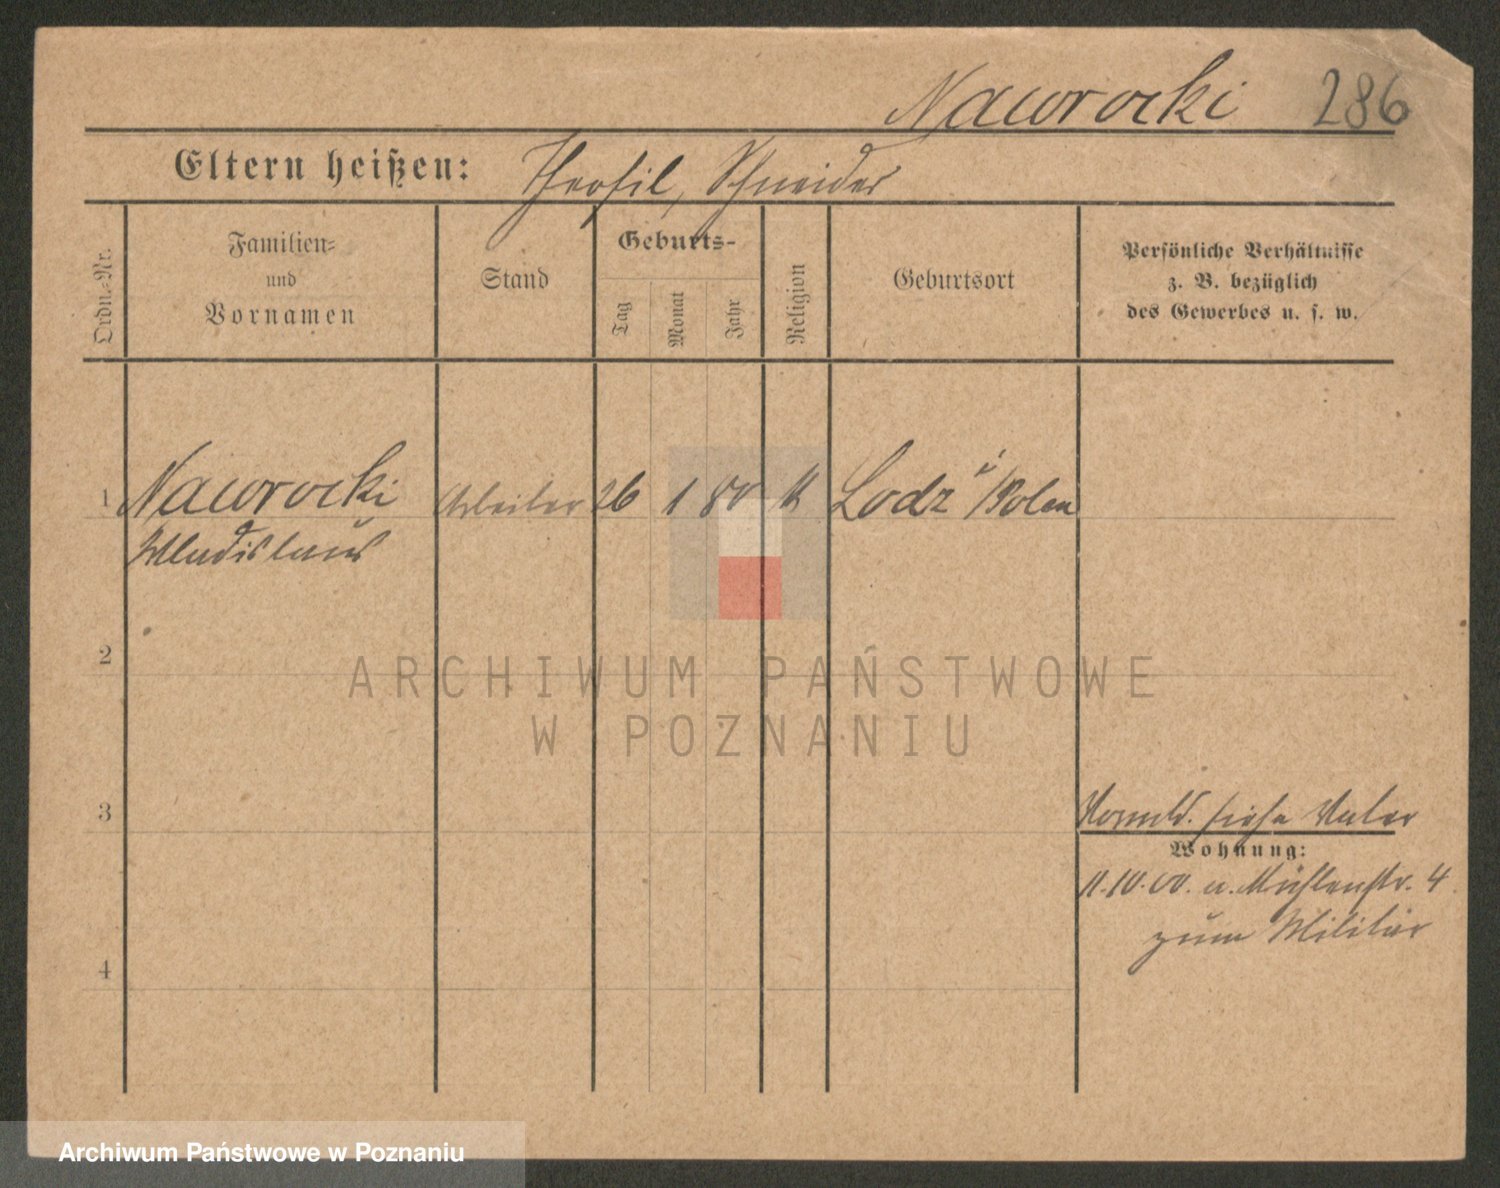 Nawrocki 286
Eltern heißen: Theofil, Schneider
Ordn.-Nr.
Familien-
und
Vornamen
Stand
Geburts-
Tag
Monat
Jahr
Religion
Geburtsort
Persönliche Verhältnisse
z. B. bezüglich
des Gewerbes u. s. w.
1 Nawrocki Arbeiter 26 1 80 k Lodz i/Polen
Wladislaus
2
ARCHIWUM PAŃSTWOWE
W POZNANIU
3
siehe Vater
Wohnung:
11.10.00. a. Mühlenstr. 4
zum Militär
4
Archiwum Państwowe w Poznaniu